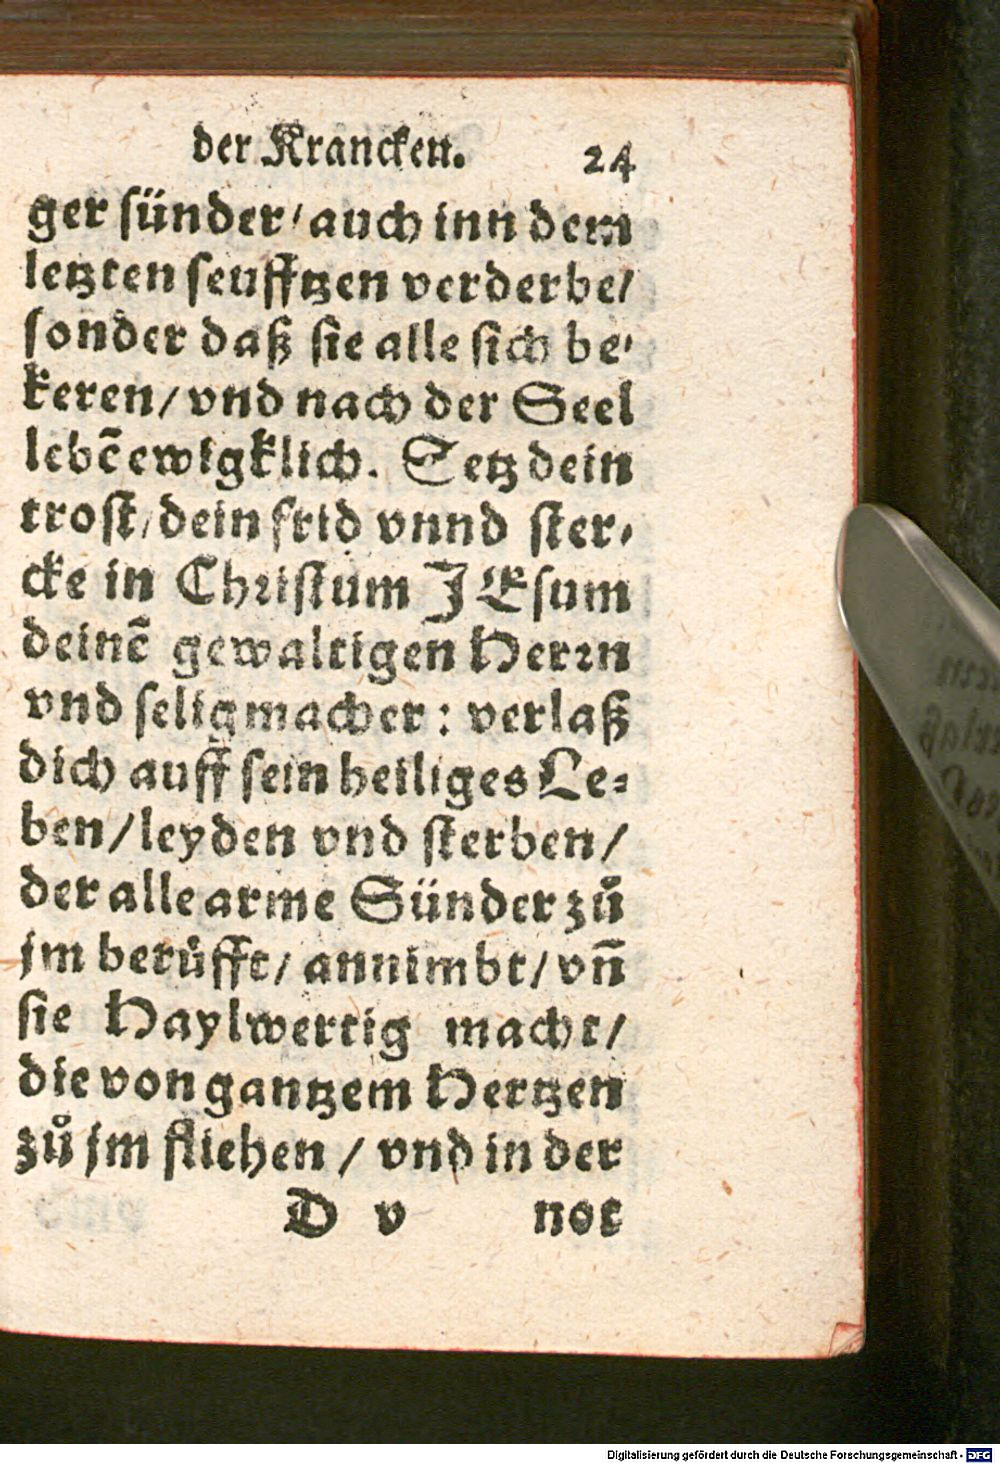 der Krancken. 24
ger sünder/ auch inn dem
letzten seufftzen verderbe/
sonder daß sie alle sich be-
keren/ vnd nach der Seel
lebē ewigklich. Setz dein
trost/ dein frid vnnd ster-
cke in Christum JEsum
deinē gewaltigen Herrn
vnd seligmacher: verlaß
dich auff sein heiliges Le-
ben/ leyden vnd sterben/
der alle arme Sünder zů
jm berůfft/ annimbt/ vñ
sie Haylwertig macht/
die von gantzem Hertzen
zů jm fliehen/ vnd in der
D v not
Digitalisierung gefördert durch die Deutsche Forschungsgemeinschaft - DFG